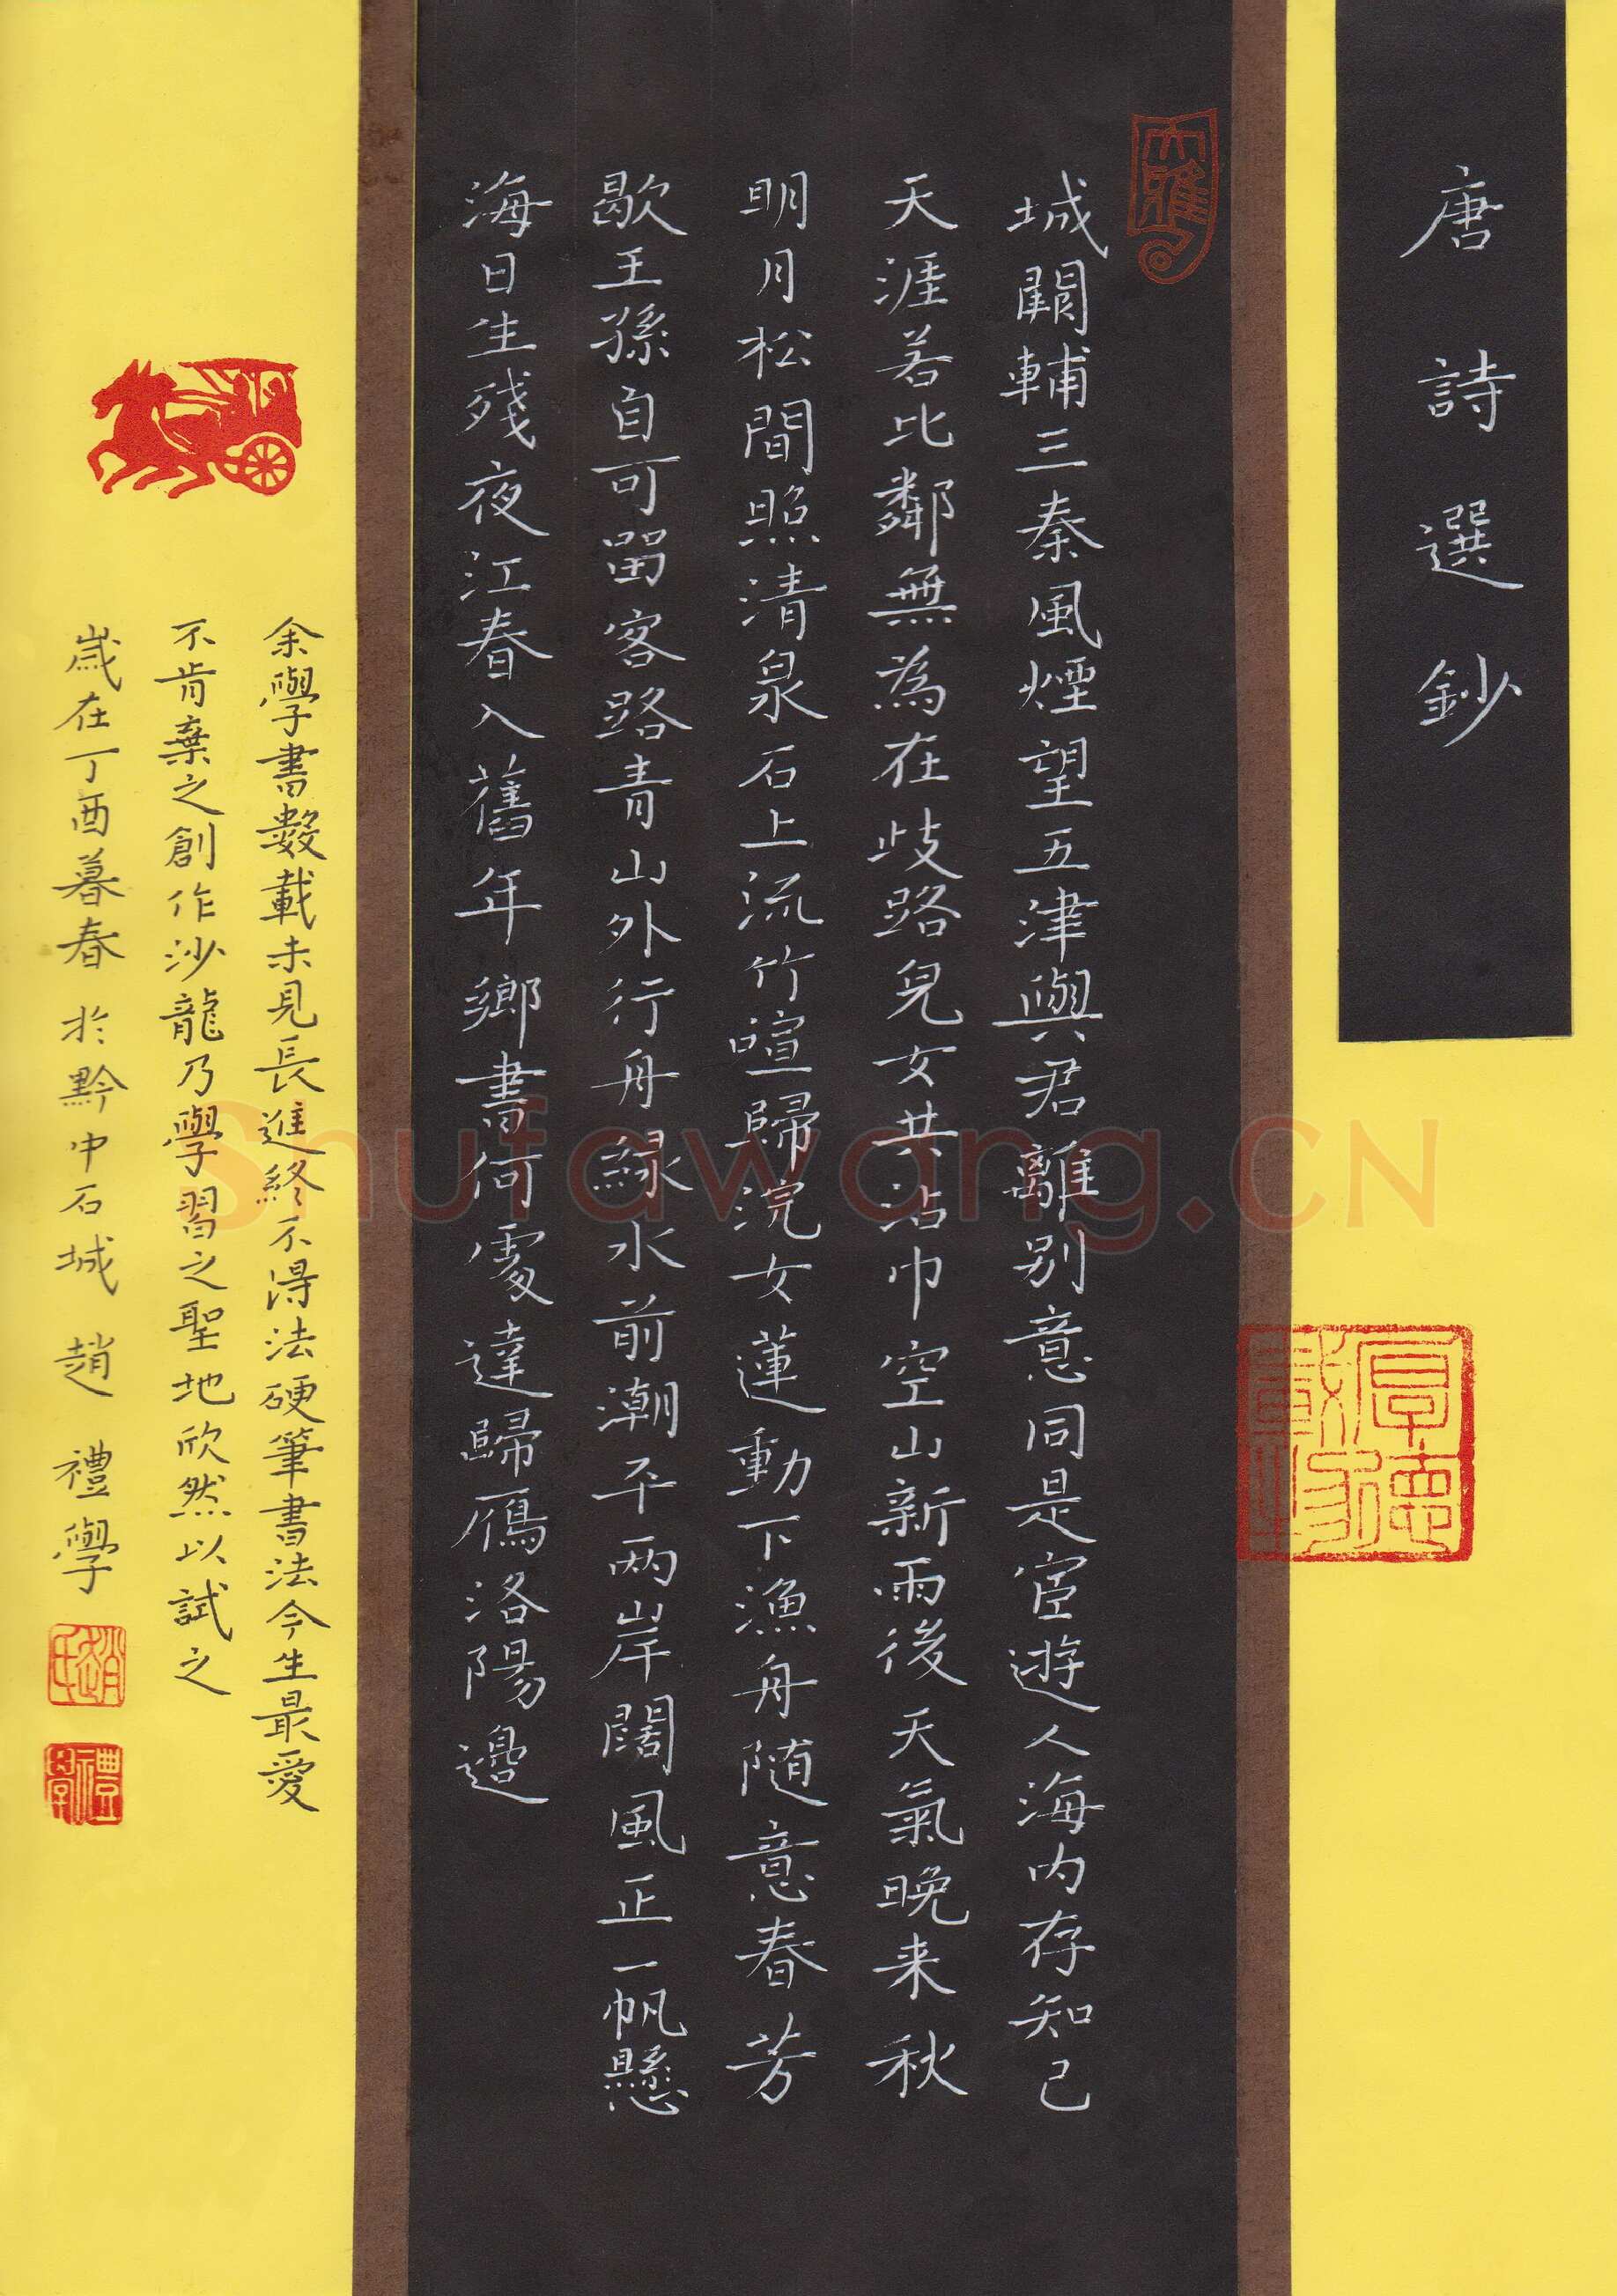 唐詩選鈔
城闕輔三秦風煙望五津與君離別意同是宦遊人海內存知己
天涯若比鄰無為在歧路兒女共沾巾空山新雨後天氣晚来秋
明月松間照清泉石上流竹喧歸浣女蓮動下漁舟随意春芳
歇王孫自可留客路青山外行舟緑水前潮平兩岸闊風正一帆懸
海日生殘夜江春入舊年鄉書何處達歸鴈洛陽邊
余學書數載未見長進終不得法硬筆書法今生最愛
不肯棄之創作沙龍乃學習之聖地欣然以試之
歲在丁酉暮春於黔中石城趙禮學
大雅
厚德載物
趙氏
禮學
Shufawang.CN